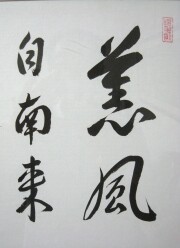 薫風
自南来